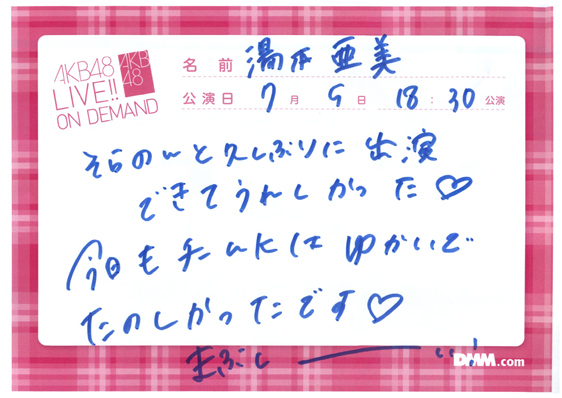 AKB48
LIVE!!
ON DEMAND
AKB
48
名前 湯本亜美
公演日 7月9日 18:30公演
そらのんと久しぶりに出演
できてうれしかった♡
今日もチームKはゆかいで
たのしかったです♡
まぶしーーい!
DMM.com